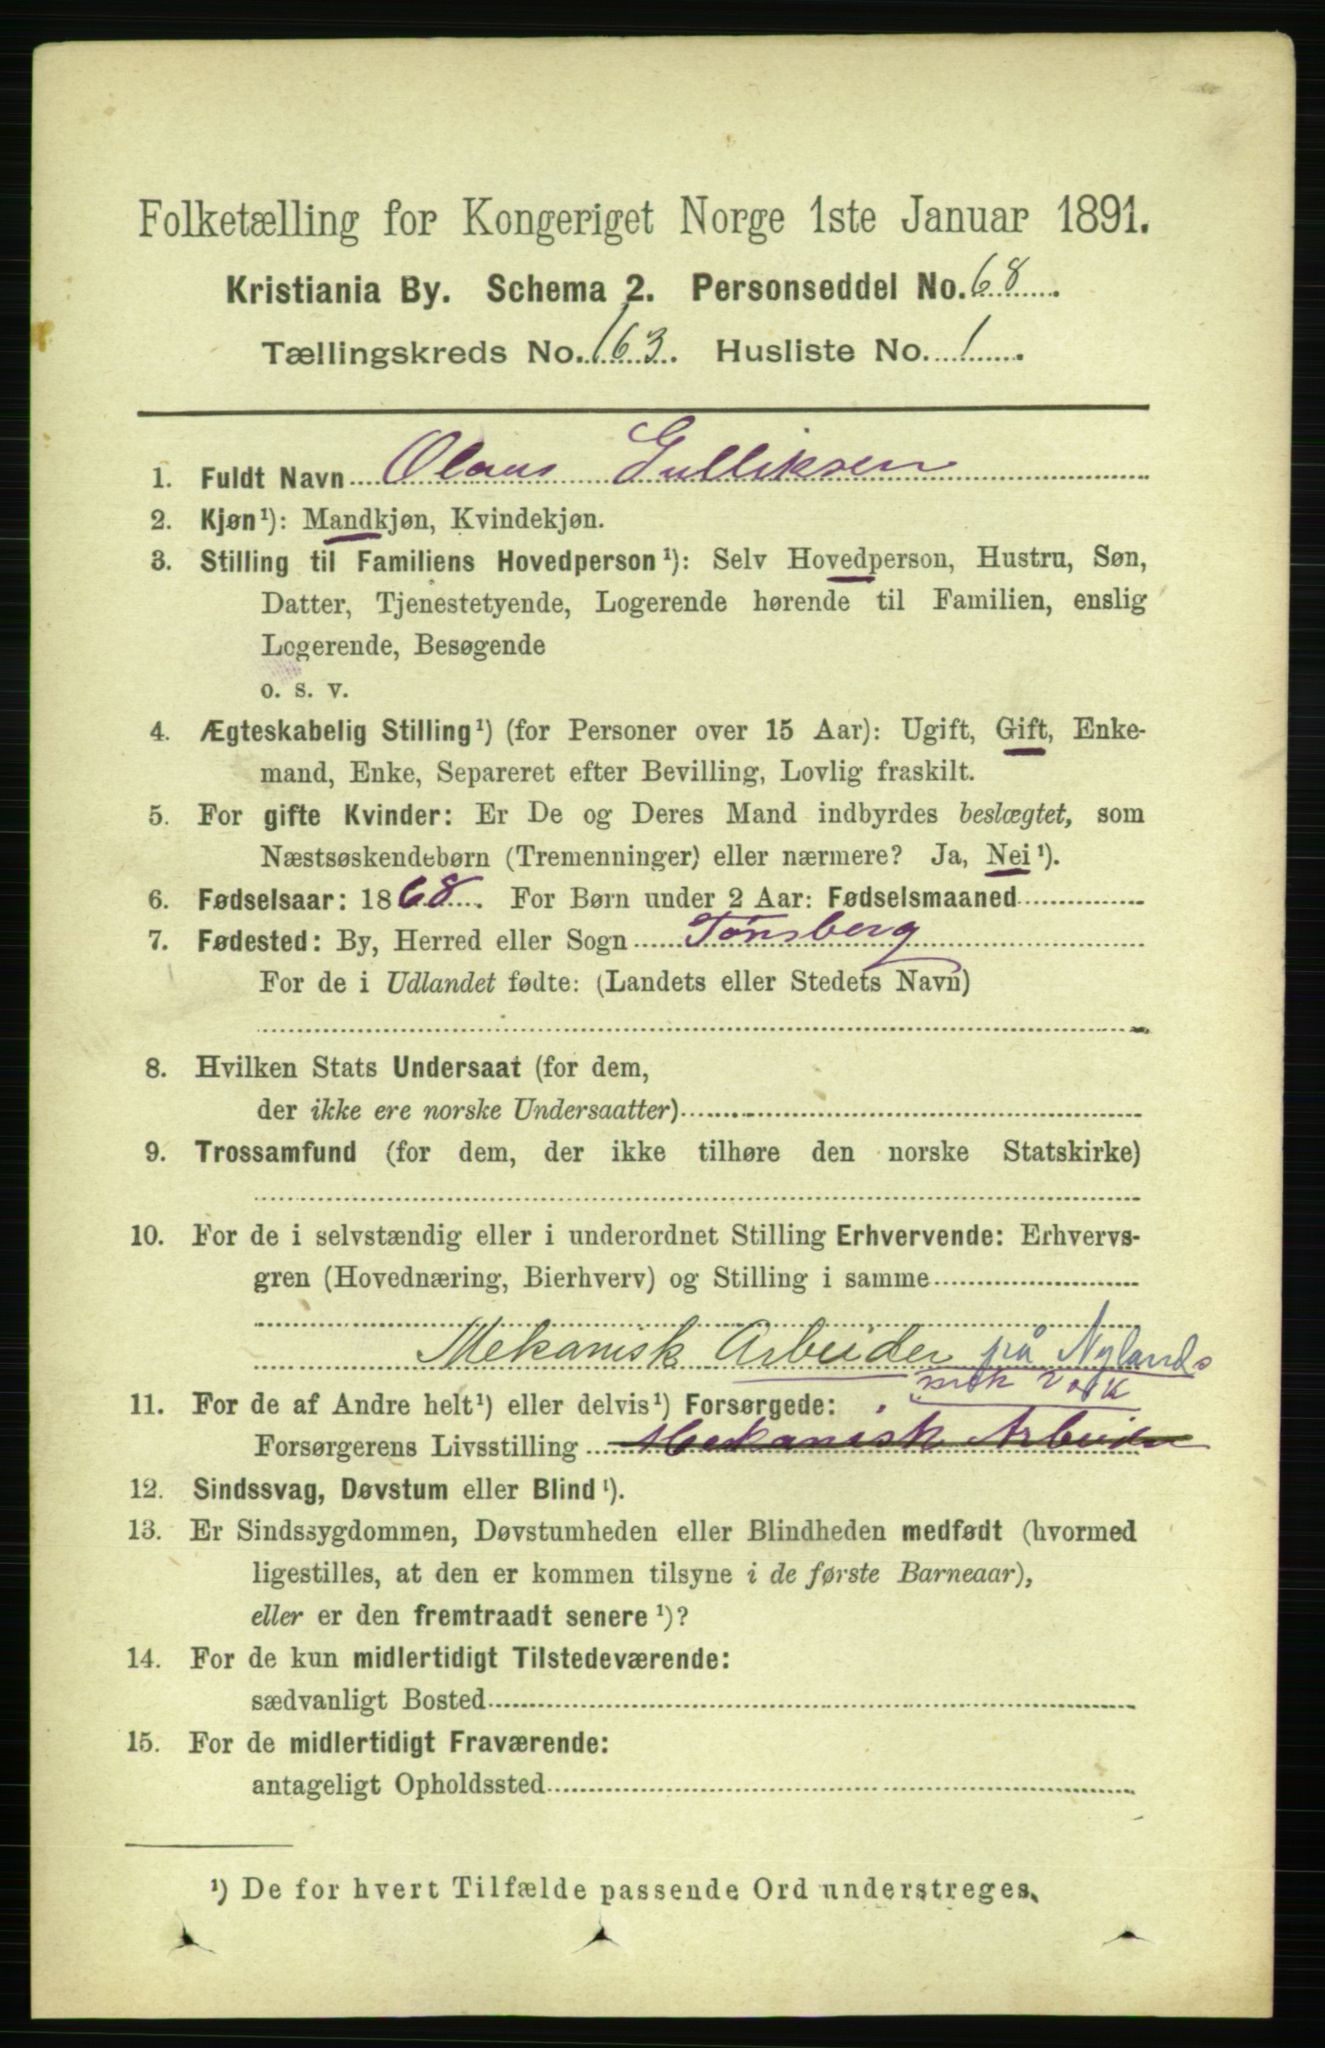 Folketælling for Kongeriget Norge 1ste Januar 1891.
Kristiania By. Schema 2. Personseddel No. 68.
Tællingskreds No. 163. Husliste No. 1.
1. Fuldt Navn Olaus Gulliksen
2. Kjøn¹): Mandkjøn, Kvindekjøn.
3. Stilling til Familiens Hovedperson¹): Selv Hovedperson, Hustru, Søn,
Datter, Tjenestetyende, Logerende hørende til Familien, enslig
Logerende, Besøgende
o. s. v.
4. Ægteskabelig Stilling¹) (for Personer over 15 Aar): Ugift, Gift, Enke-
mand, Enke, Separeret efter Bevilling, Lovlig fraskilt.
5. For gifte Kvinder: Er De og Deres Mand indbyrdes beslægtet, som
Næstsøskendebørn (Tremenninger) eller nærmere? Ja, Nei¹).
6. Fødselsaar: 1868. For Børn under 2 Aar: Fødselsmaaned
7. Fødested: By, Herred eller Sogn Tønsberg
For de i Udlandet fødte: (Landets eller Stedets Navn)
8. Hvilken Stats Undersaat (for dem,
der ikke ere norske Undersaatter)
9. Trossamfund (for dem, der ikke tilhøre den norske Statskirke)
10. For de i selvstændig eller i underordnet Stilling Erhvervende: Erhvervs-
gren (Hovednæring, Bierhverv) og Stilling i samme
Mekanisk Arbeider på Nylands
mek V.k
11. For de af Andre helt¹) eller delvis¹) Forsørgede:
Forsørgerens Livsstilling Mekanisk Arbeider
12. Sindssvag, Døvstum eller Blind¹).
13. Er Sindssygdommen, Døvstumheden eller Blindheden medfødt (hvormed
ligestilles, at den er kommen tilsyne i de første Barneaar),
eller er den fremtraadt senere¹)?
14. For de kun midlertidigt Tilstedeværende:
sædvanligt Bosted
15. For de midlertidigt Fraværende:
antageligt Opholdssted
¹) De for hvert Tilfælde passende Ord understreges.